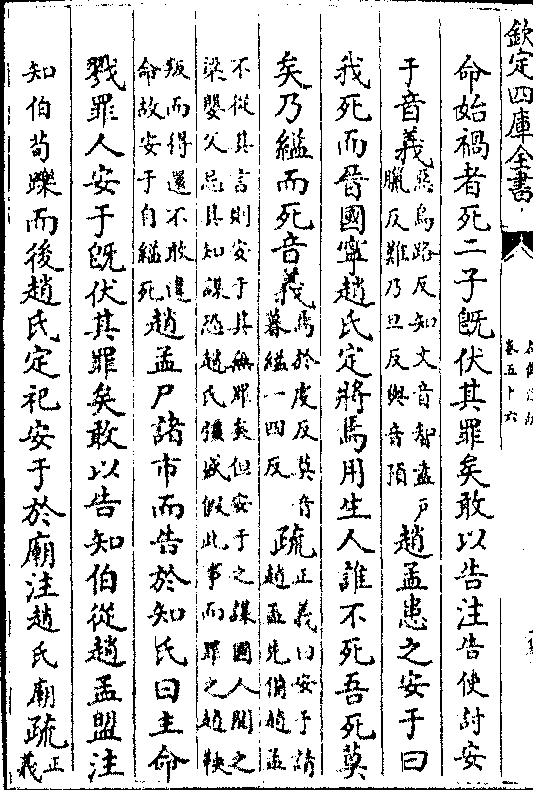 欽定四庫全書
卷五十六
命始禍者死二子既伏其罪矣敢以告注告使討安
于音義惡烏路反知文音智盍戶臘反難乃旦反與音預趙孟患之安于曰
我死而晉國寧趙氏定將焉用生人誰不死吾死莫
矣乃縊而死音義焉於虔反莫音暮縊一四反疏正義曰安于請趙孟先備趙孟
不從其言則安于其無罪矣但安于之謀國人聞之梁嬰父忌其知謀恐趙氏彊盛假此事而罪之趙鞅
叛而得還不敢違命故安于自縊死趙孟尸諸市而告於知氏曰主命
戮罪人安于既伏其罪矣敢以告知伯從趙孟盟注
知伯荀躒而後趙氏定祀安于於廟注趙氏廟疏正義